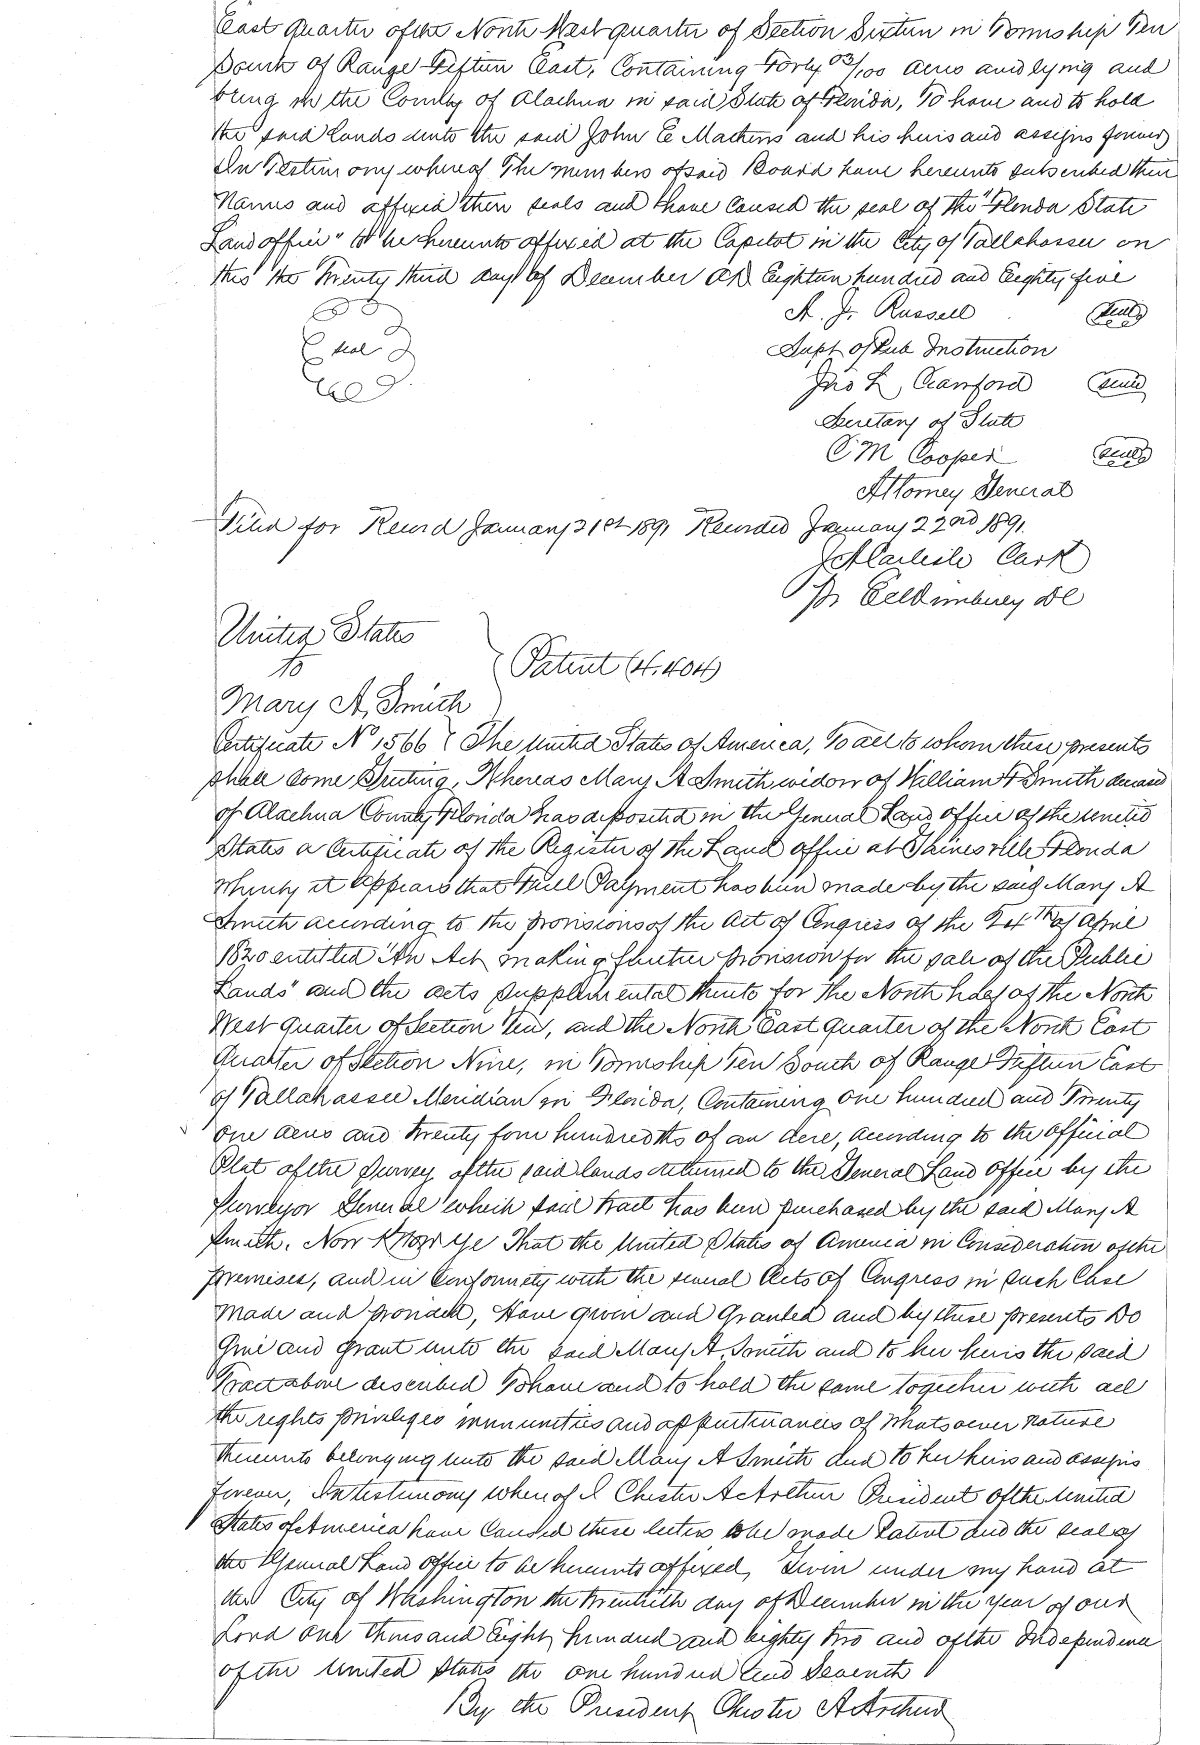 East quarter of the North West quarter of Section Sixteen in Township Ten
South of Range Fifteen East, Containing Forty 03/100 acres and lying and
being in the County of Alachua in said State of Florida, To have and to hold
the said lands unto the said John E and his heirs and assigns forever
In Testimony whereof The members of said Board have hereunto subscribed their
Names and affixed their seals and have caused the seal of the "Florida State
Land office" to be hereunto affixed at the Capitol in the City of Tallahassee on
this the Twenty third day of December AD Eighteen hundred and Eighty five
A. J. Russell seal
seal
Supt of Pub Instruction
Jno L, Crawford seal
Secretary of State
C M Cooper seal
Attorney General
Filed for Record January 21st 1891 Recorded January 22nd 1891,
J A Carlisle Clerk
Pr DC
United States
to
Patent (4.404)
Mary A, Smith
Certificate No 1566 { The United States of America, To all to whom these presents
shall come Greeting, Whereas Mary A Smith widow of William Smith deceased
of Alachua County Florida has deposited in the General Land office of the United
States a Certificate of the Register of the Land office at Gainesville Florida
whereby it appears that Full Payment has been made by the said Mary A
Smith according to the provisions of the Act of Congress of the 24th of April
1820 entitled "An Act making further provision for the sale of the Public
Lands" and the acts supplemental thereto for the North half of the North
West quarter of Section Ten, and the North East quarter of the North East
Quarter of Section Nine, in Township Ten South of Range Fifteen East
of Tallahassee Meridian in Florida, Containing one hundred and Twenty
one acres and twenty four hundredths of an acre, according to the official
Plat of the survey of the said lands returned to the General Land Office by the
Surveyor General which said tract has been purchased by the said Mary A
Smith. Now Know Ye That the United States of America in Consideration of the
premises, and in conformity with the several Acts of Congress in such Case
made and provided, Have given and Granted and by these presents Do
Give and grant unto the said Mary A, Smith and to her heirs the said
Tract above described To have and to hold the same together with all
the rights privileges immunities and appurtenances of whatsoever nature
thereunto belonging unto the said Mary A Smith and to her heirs and assigns
forever, In testimony whereof I Chester A Arthur President of the United
States of America have caused these letters to be made Patent and the seal of
the General Land office to be hereunto affixed, Given under my hand at
the City of Washington the twentieth day of December in the year of our
Lord one thousand Eight hundred and eighty two and of the Independence
of the United States the one hundred and Seventh
By the President Chester A Arthur